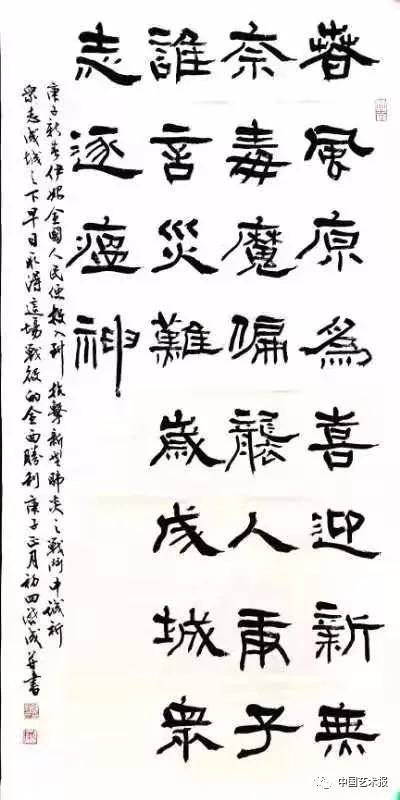 春風原為喜迎新無
奈毒魔偏襲人庚子
誰言災難歲成城眾
志逐瘟神
庚子新春伊始全國人民便投入到抗擊新型肺炎之戰鬥中誠祈
眾志成城之下早日取得這場戰役的全面勝利庚子正月初四成并書
中国艺术报